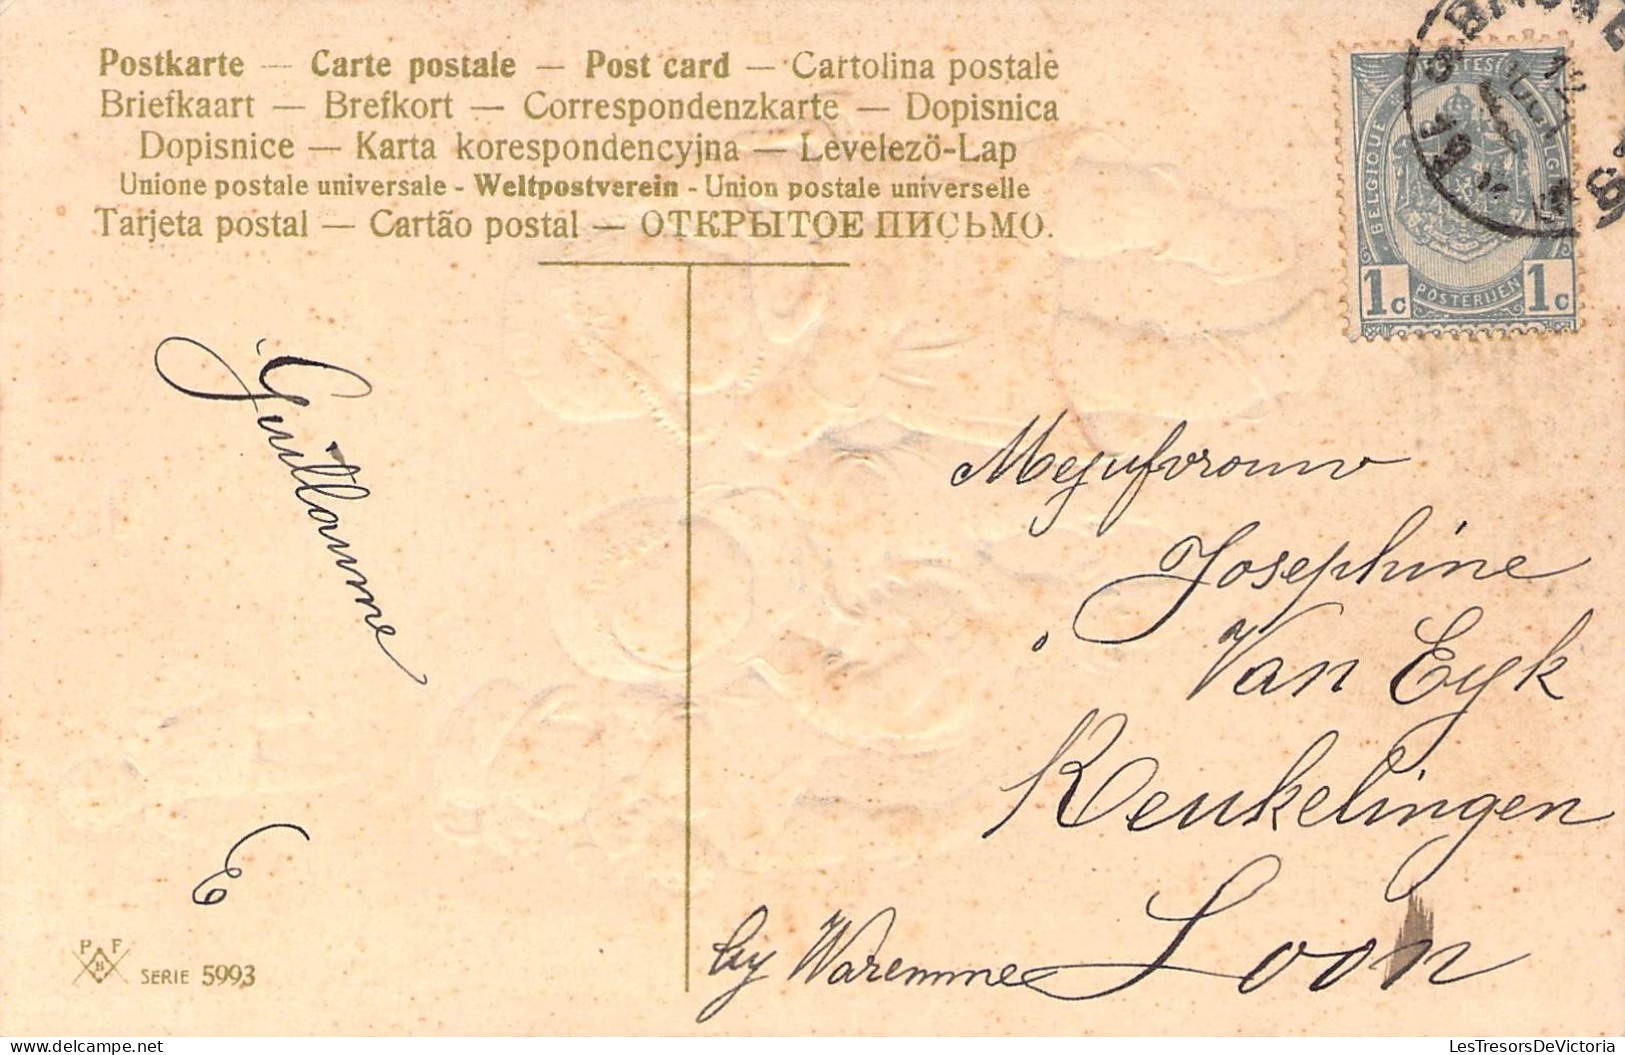 Postkarte — Carte postale — Post card — Cartolina postale
Briefkaart — Brefkort — Correspondenzkarte — Dopisnica
Dopisnice — Karta korespondencyjna — Levelezö-Lap
Unione postale universale - Weltpostverein - Union postale universelle
Tarjeta postal — Cartão postal — ОТКРЫТОЕ ПИСЬМО.
BELGIQUE
POSTERIJEN
1c 1c
Guillaume
Mejufvrouw
Josephine
Van Eyk
Reukelingen
by Waremme Loon
E
P F
B
SERIE 5993
LesTresorsDeVictoria
http://www.delcampe.net
LesTresorsDeVictoria